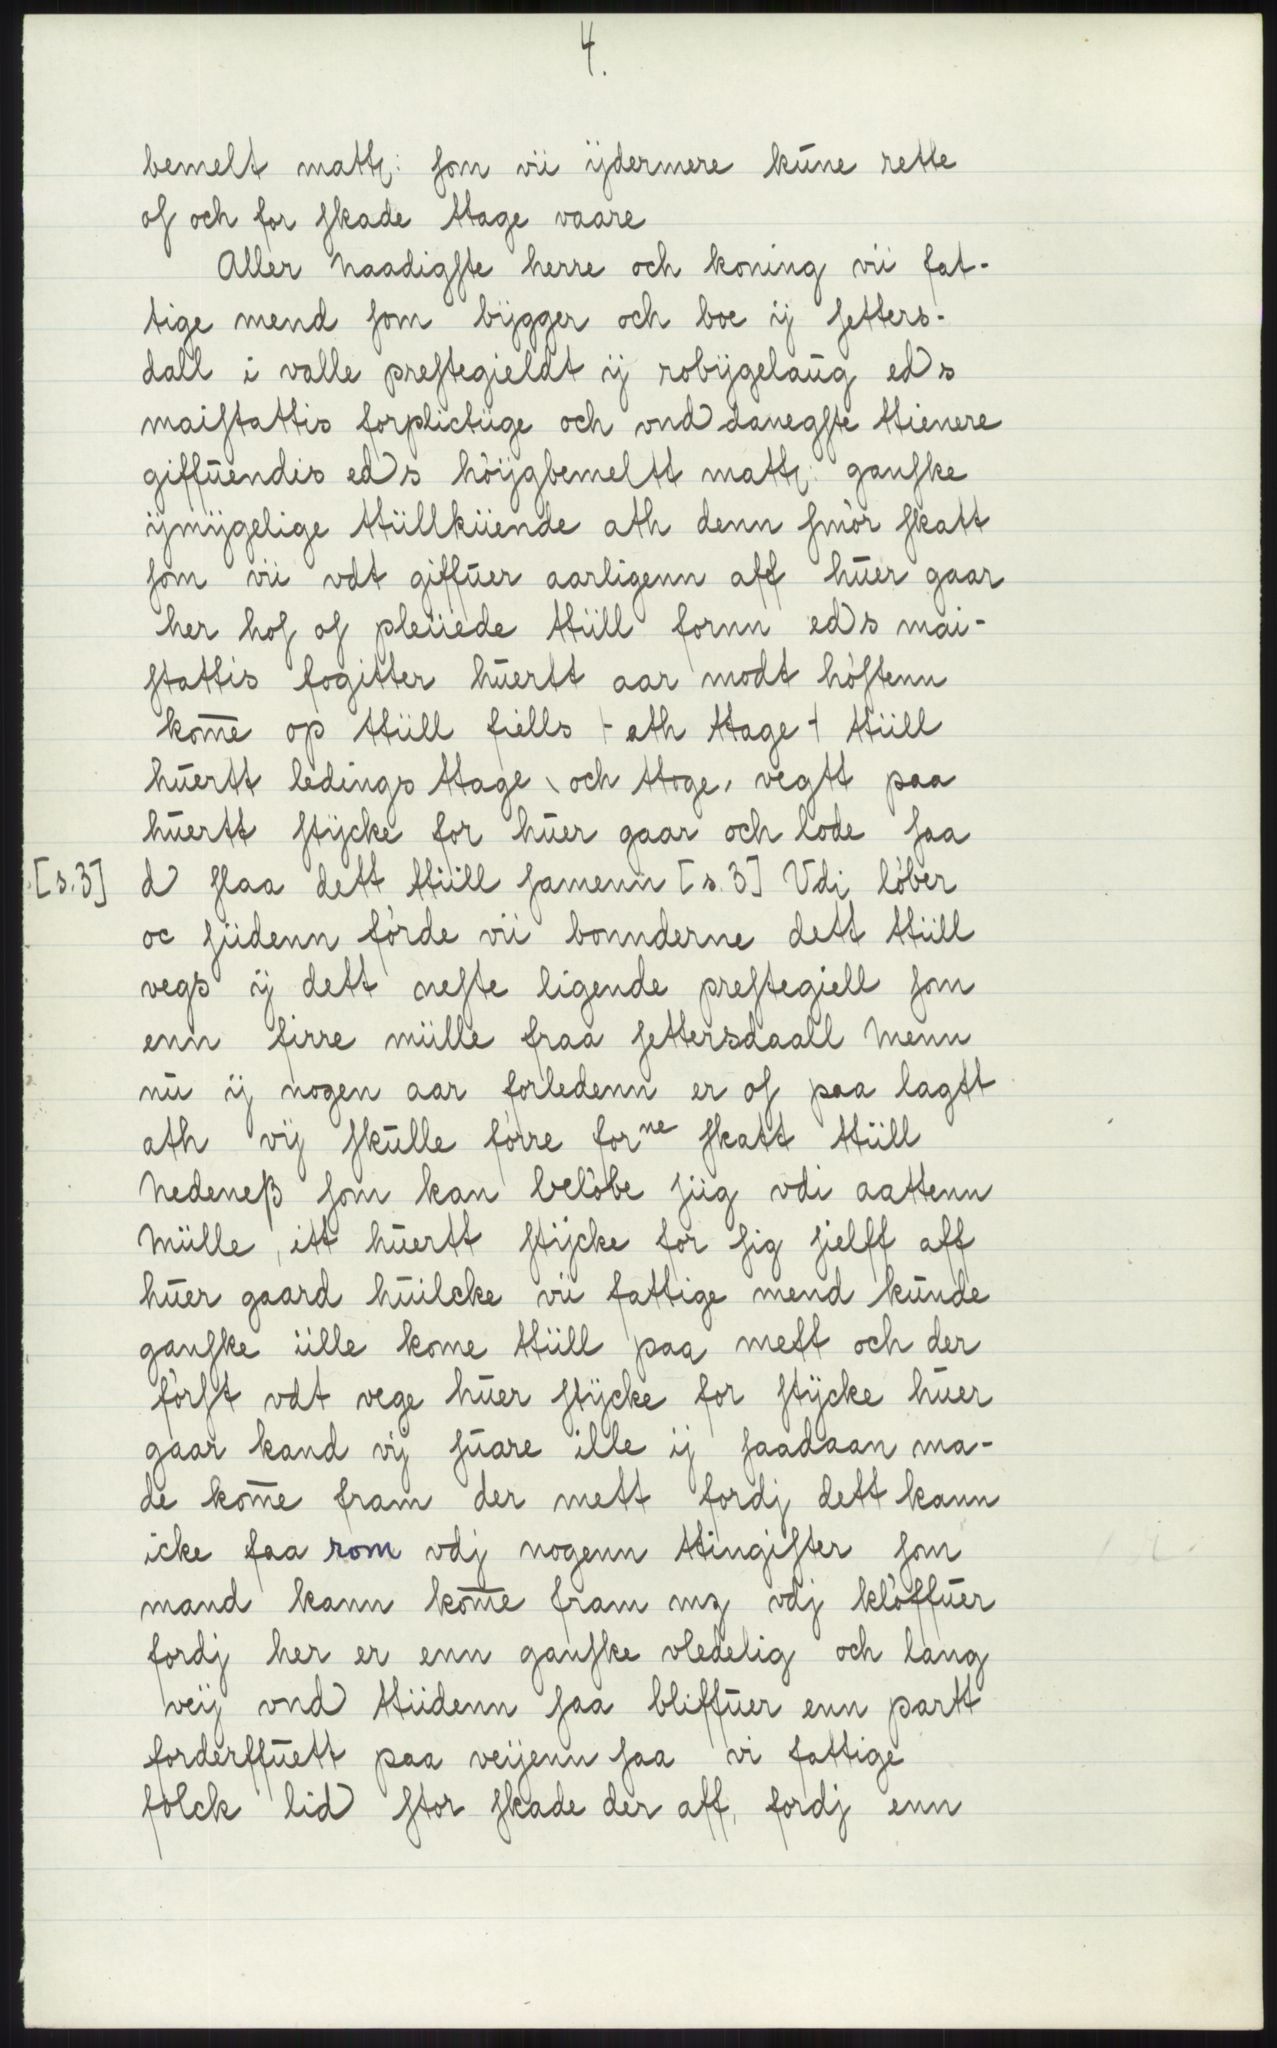 4.
bemelt matt: som vii ydermere kune rette
os och for skade ttage vaare
Aller Naadigste herre och koning vii fat-
tige mend som bÿgger och boe ij setters-
dall i valle prestegieldt ij robÿgelaug eds
maistattis forplictüge och vnddanegste ttienere
giffuendis eds höÿgbemeltt matt: ganske
ÿmÿgelige ttiillkiiende ath denn smör skatt
som vii vdt giffuer aarligenn aff huer gaar
her hos os pleiiede ttiill fornn eds mai-
stattis fogitter huertt aar modt höstenn
kom̅e op ttiill fiells + ath ttage + ttiill
huertt ledings ttage, och ttoge, vegtt paa
huertt stÿcke for huer gaar och lode saa
[s.3] d slaa dett ttiill samenn [s.3] Vdj löber
oc siidenn förde vii bonnderne dett ttiill
vegs ij dett neste ligende prestegiell som
enn firre miille fraa settersdaall Menn
nu ij nogen aar forledenn er os paa lagtt
ath vij skulle förre forne skatt ttiill
Nedeneß som kan belöbe siig vdi aattenn
Miille, itt huertt stÿcke for sig sielff aff
huer gaard huilcke vii fattige mend kunde
ganske iille kome ttiill paa mett och der
först vdt vege huer stÿcke for stÿcke huer
gaar kand vij suare ille ij saadaan ma-
de kom̅e fram der mett fordj dett kann
icke faa rom vdj nogenn ttingister som
mand kann kom̅e fram mz vdj klöffuer
fordj her er enn ganske vledelig och lang
veij vnd ttiidenn saa bliffuer enn partt
forderffuett paa veijenn saa vi fattige
folck lid stor skade der aff, fordj enn